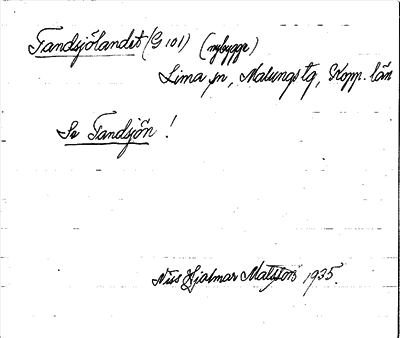 Tandsjölandet (G 101) (nybygge)
Lima sn, Malungs tg, Kopp. län
Se Tandsjön !
Nils Hjalmar Matsson 1935.